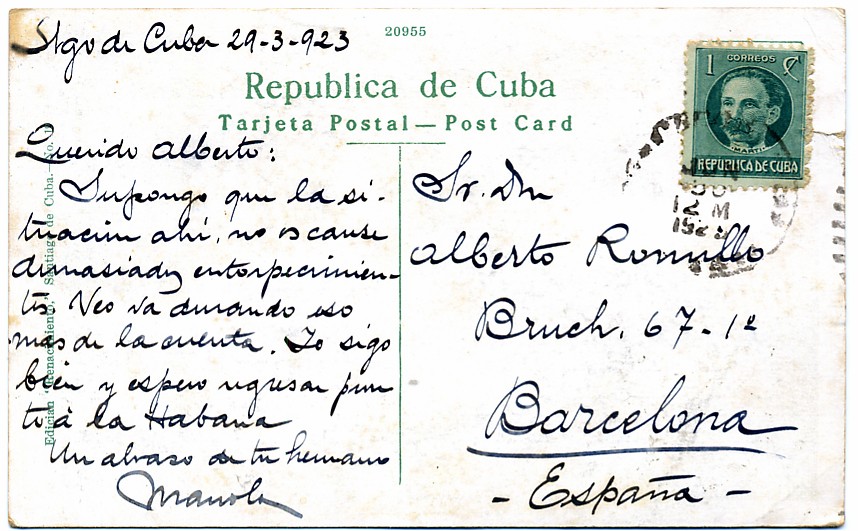 Stgo de Cuba 29-3-923
20955
Republica de Cuba
Tarjeta Postal — Post Card
Querido Alberto:
Supongo que la si-
tuación ahí, no os cause
demasiados entorpecimien-
tos. Veo va durando eso
mas de la cuenta. Yo sigo
bien y espero regresar pron
to á la Habana
Un abraso de tu hermano
Manolo
Edición "Renacimiento," Santiago de Cuba.—No.
1 CORREOS ¢
MARTI
REPUBLICA DE CUBA
12 M
1923
Sr. Dn
Alberto Romillo
Bruch. 67-1º
Barcelona
- España -